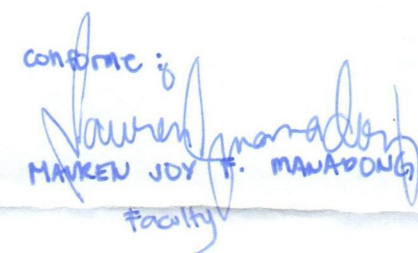 conforme :
MAUREN JOY F. MANADONG
Faculty